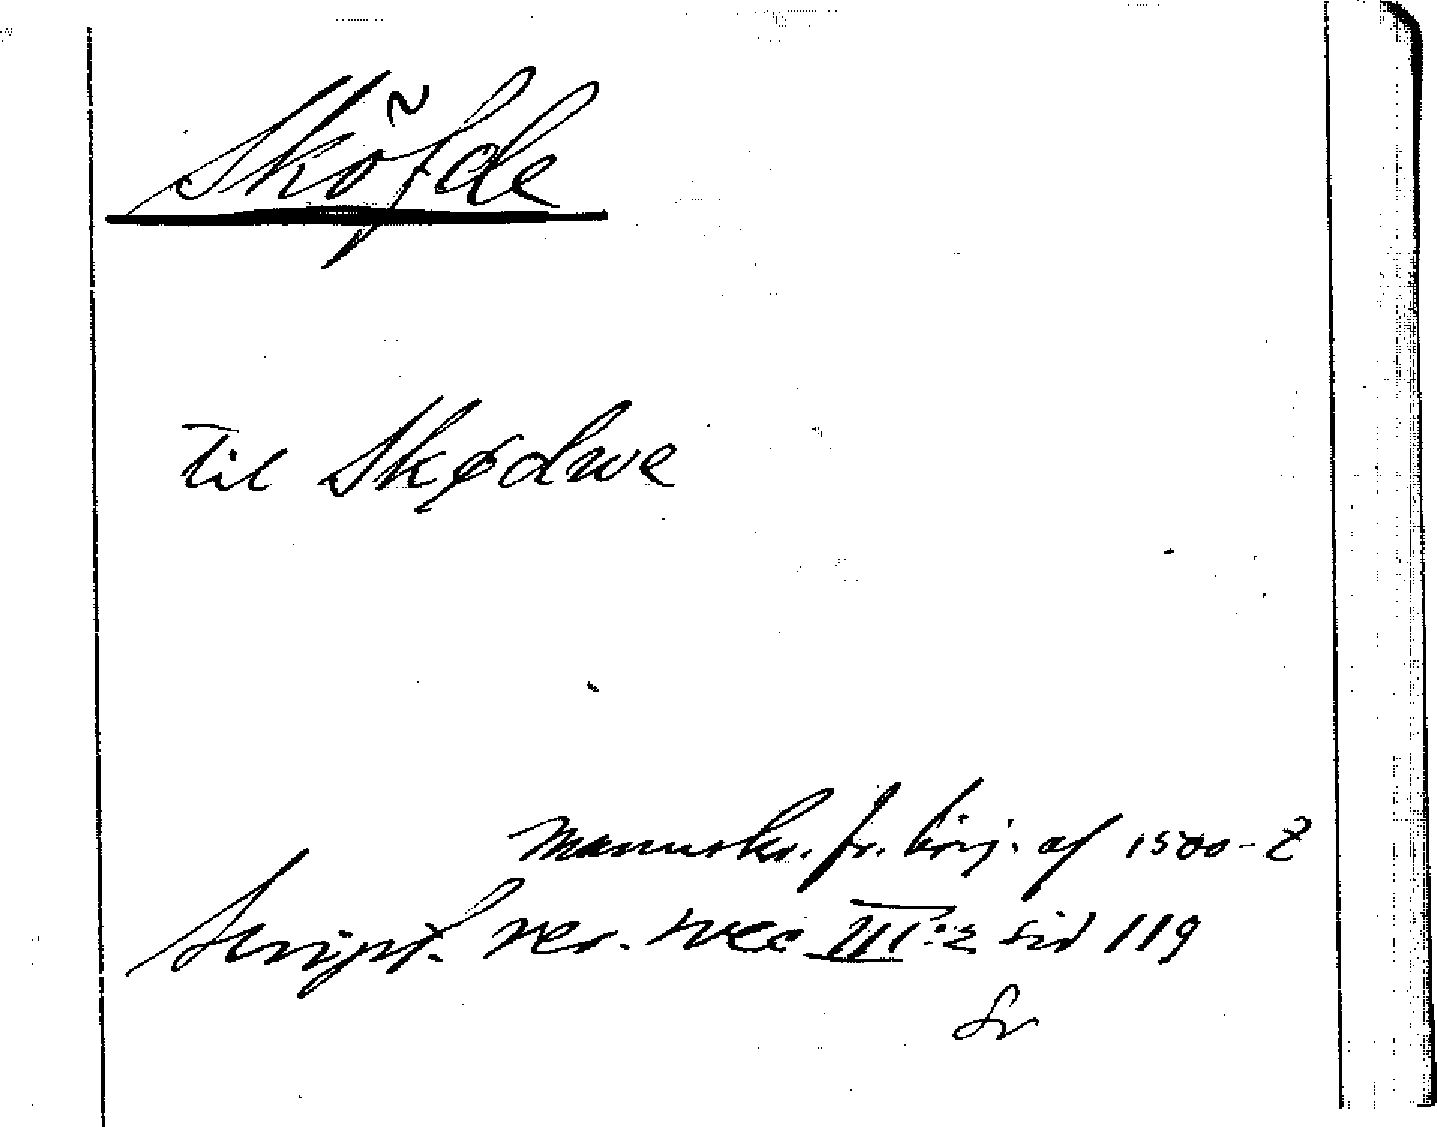 Sköfde
til Skødwe
Manuskr. fr. börj. af 1500-t
Script. rer. svec III:2 sid 119